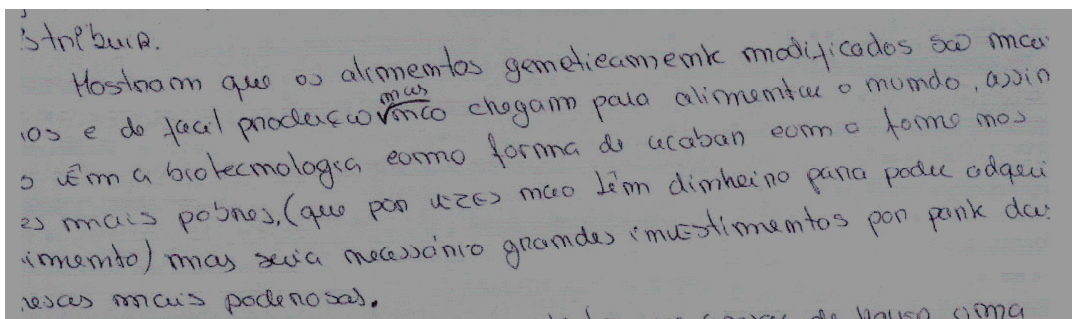 stribuir.
Mostram que os alimentos geneticamente modificados são mai
ios e de facil produção mas não chegam para alimentar o mundo, assin
s vêm a biotecnologia como forma de acaban com a fome nos
es mais pobres, (que por vezes não têm dinheiro para poder adqeri
imento) mas seria necessário grandes investimentos por parte das
resas mais poderosas.
de houso uma